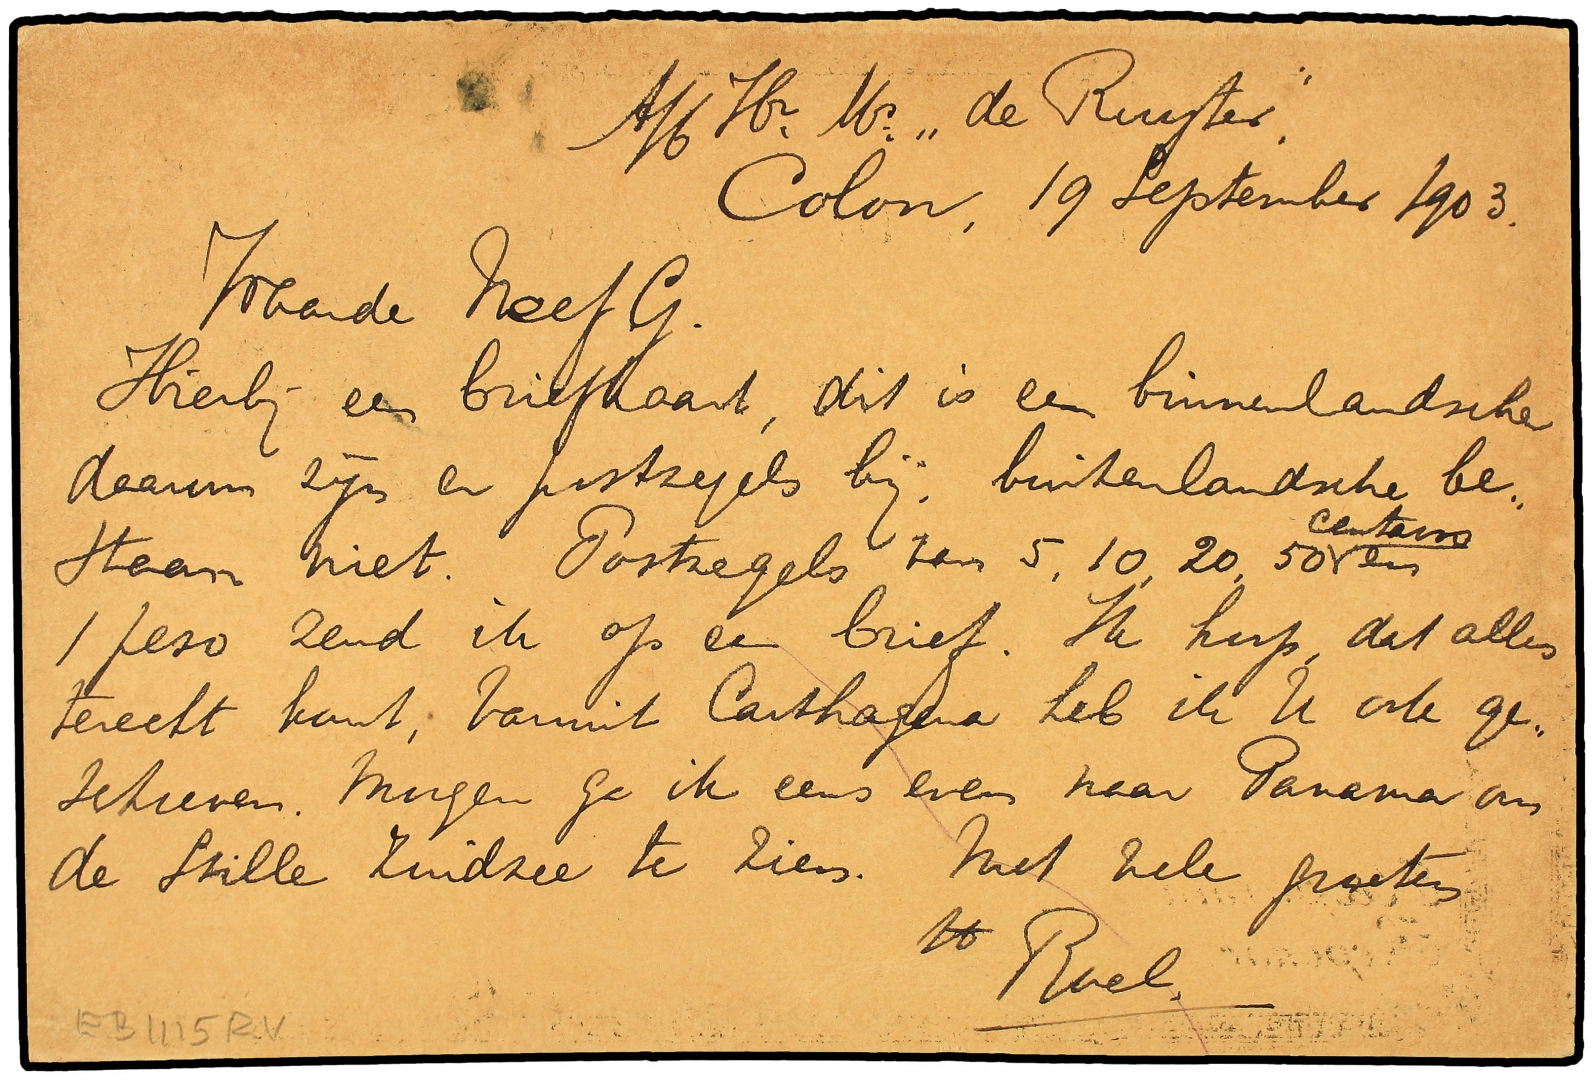 A/b Hr. Ms. „de Ruyter”.
Colon, 19 September 1903.
Waarde Neef G.
Hierbij een briefkaart, dit is een binnenlandsche
daarom zijn er postzegels bij, buitenlandsche be„
staan niet. Postzegels van 5, 10, 20, 50 centavos en
1 peso zend ik op een brief. Ik hoop, dat alles
terecht komt, vanuit Carthagena heb ik U ook ge„
schreven. Morgen ga ik eens even naar Panama om
de Stille Zuidzee te zien. Met vele groeten
Roel.
EB1115RV